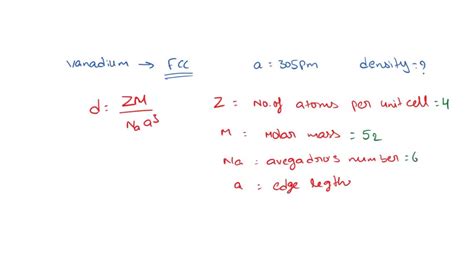 vanadium → FCC a = 305pm density = ?
d = ZM / Na a³
Z = No. of atoms per unit cell = 4
M = Molar mass = 52
Na = avegadro's number = 6
a = edge legth